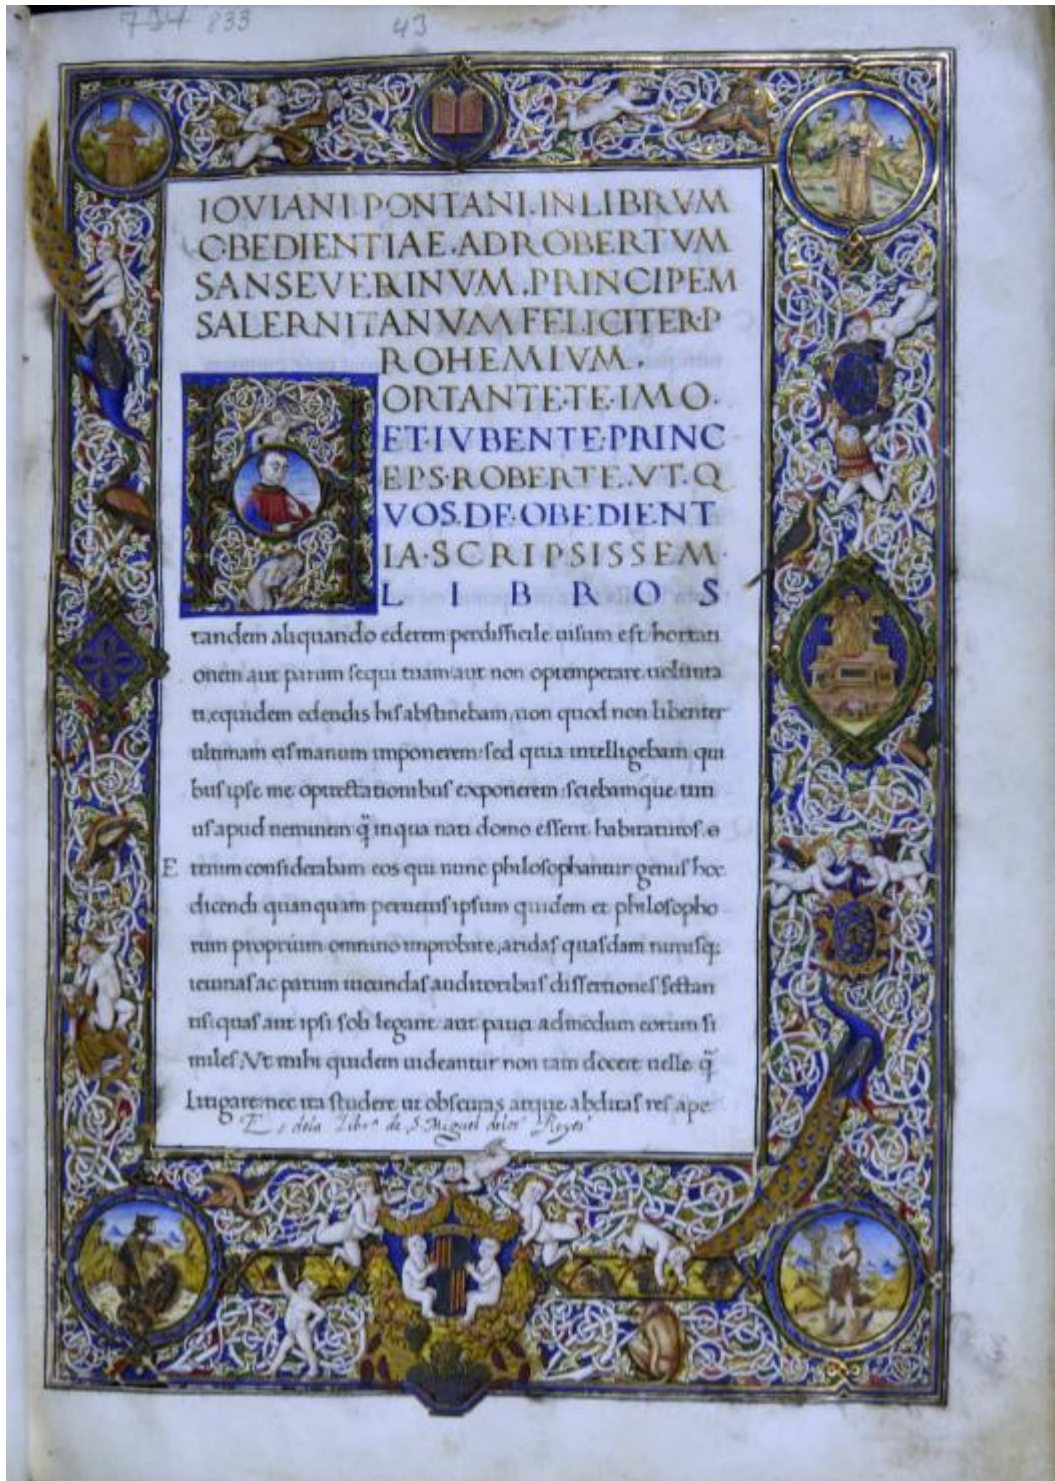 794 833 43
IOVIANI PONTANI. IN LIBRVM
OBEDIENTIAE. AD ROBERTVM
SANSEVERINVM. PRINCIPEM
SALERNITANVM FELICITER. P
ROHEMIVM.
ORTANTE. TE. IMO.
ET. IVBENTE. PRINC
EPS. ROBERTE. VT. Q
VOS. DE. OBEDIENT
IA. SCRIPSISSEM.
LIBROS
tandem aliquando ederem perdifficile uisum est hortati
onem aut parum sequi tuam aut non optemperare uolunta
ti, equidem edendis his abstinebam, non quod non libenter
ultimam eis manum imponerem: sed quia intelligebam qui
bus ipse me optrectationibus exponerem: sciebamque
us apud neminem q̃ in qua nati domo essent habitaturos.
E tenim considerabam eos qui nunc philosophantur genus hoc
dicendi quanquam peruetus ipsum quidem et philosopho
rum proprium omnino improbare, aridas quasdam
ieiunas ac parum iucundas auditoribus dissertiones sectan
tis: quas aut ipsi soli legant aut pauci admodum eorum si
miles. Vt mihi quidem uideantur non tam docere uelle q̃
Litigare: nec ita studere ut obscuras atque abditas res ape
Es dela Libr.ª de S. Miguel delos Reyes